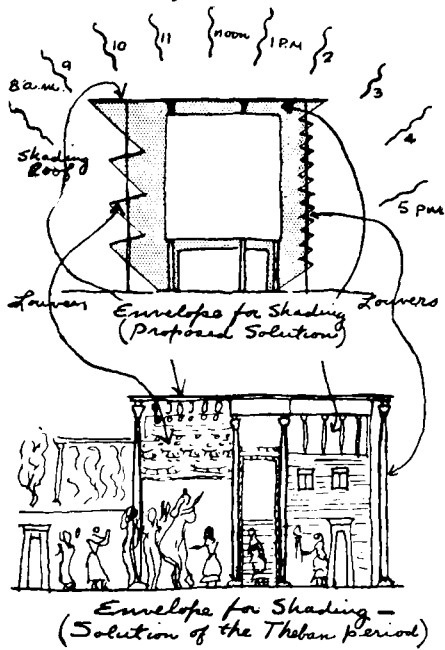 8 a.m.
9
10
11
noon
1 P.M
2
3
4
5 P.M.
Shading
Roof
Louvers
Louvers
Envelope for Shading
(Proposed Solution)
Envelope for Shading —
(Solution of the Theban period)